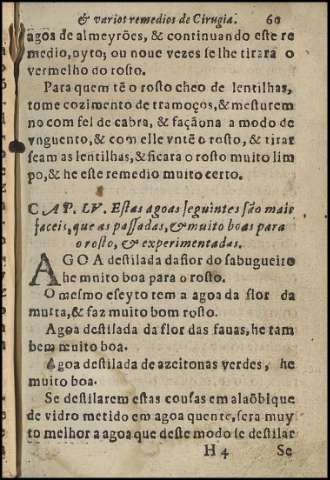 & varios remedios de Cirugia. 60
agos de almeyrões, & continuando este re
medio, oyto; ou noue vezes se lhe tirará o
vermelho do rosto.
Para quem tẽ o rosto cheo de lentilhas,
tome cozimento de tramoços, & mesturem
no com fel de cabra, & façãona a modo de
vnguento, & com elle vntẽ o rosto, & tirar
seam as lentilhas, & ficara o rosto muito lim
po, & he este remedio muito certo.
CAP. LV. Estas agoas seguintes são mais
faceis, que as passadas, & muito boas para
o rosto, & experimentadas.
AGOA destilada da flor do sabugueiro
he muito boa para o rosto.
O mesmo efeyto tem a agoa da flor da
murta, & faz muito bom rosto.
Agoa destilada da flor das fauas, he tam
bem muito boa.
Agoa destilada de azeitonas verdes, he
muito boa.
Se destilarem estas cousas em alãbique
de vidro metido em agoa quente, sera muy
to melhor a agoa que deste modo se destilar
H 4 Se